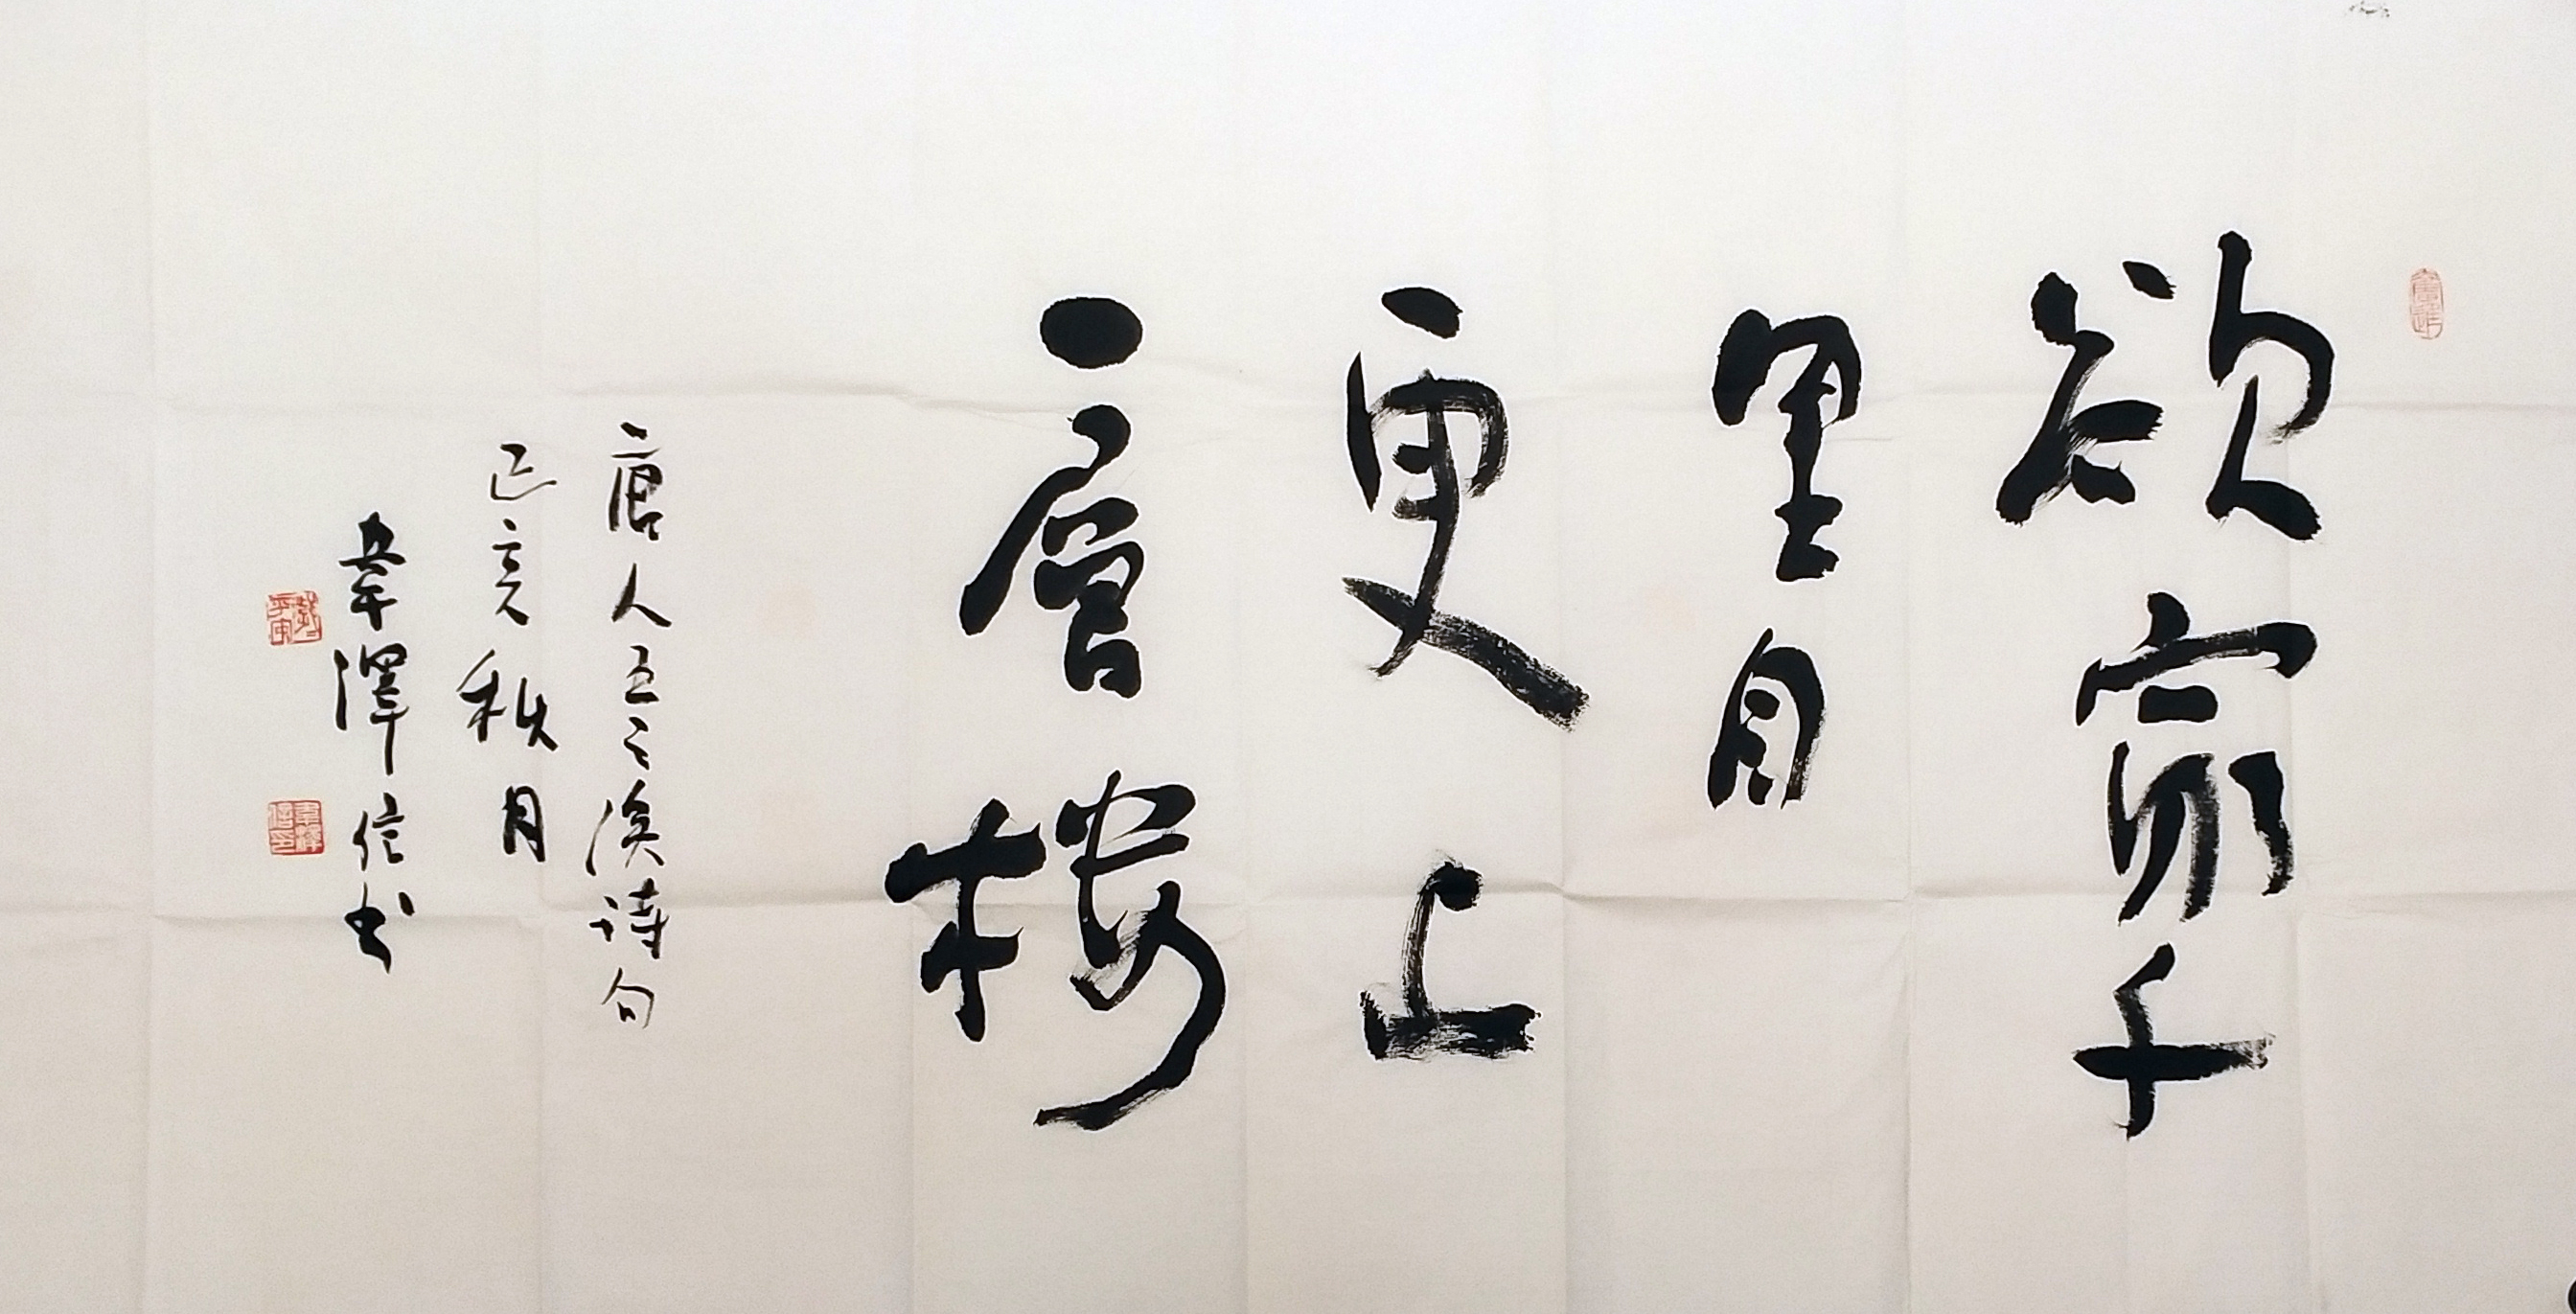 欲窮千
里目
更上
一層樓
唐人王之渙詩句
己亥秋月
韋澤信书
韋澤信印